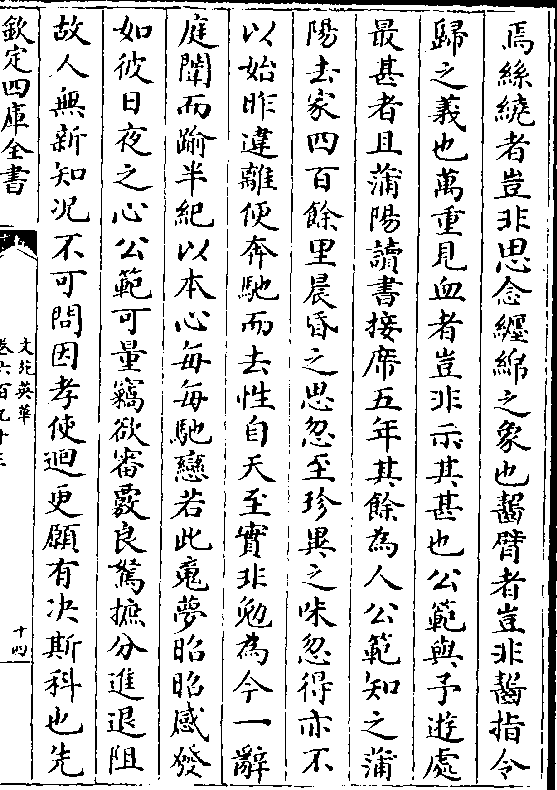 焉絲繞者豈非思念纒緜之象也齧臂者豈非齧指令
歸之義也萬重見血者豈非示其甚也公範與予遊處
最甚者且蒲陽讀書接席五年其餘為人公範知之蒲
陽去家四百餘里晨昏之思忽至珍異之味忽得亦不
以始昨違離便奔馳而去性自天至實非勉為今一辭
庭闈而踰半紀以本心每每馳戀若此䰟夢昭昭感發
如彼日夜之心公範可量竊欲審覈良駑摭分進退阻
故人無新知況不可問因孝使迴更願有決斯科也先
欽定四庫全書
文苑英華
卷六百九十三
十四